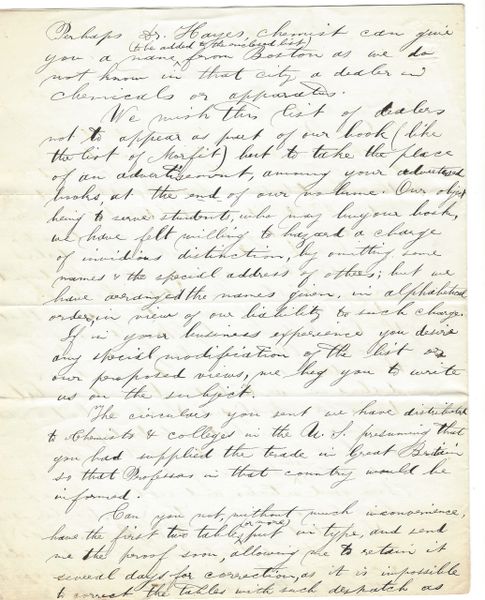 Perhaps Dr. Hayes, chemist can give
you a name (to be added to the enclosed list) from Boston as we do
not know in that city a dealer in
chemicals or apparatus.
We wish this list of dealers
not to appear as part of our book (like
the list of Morfit) but to take the place
of an advertisement, among your advertised
books, at the end of our volume. Our object
being to serve students, who may buy our book,
we have felt willing to hazard a charge
of invidious distinction, by omitting some
names & the special address of others; but we
have arranged the names given, in alphabetical
order, in view of our liability to such charge.
If in your business experience you desire
any special modification of the list or
our proposed views, we beg you to write
us on the subject.
The circulars you sent we have distributed
to Chemists & colleges in the U. S. presuming that
you had supplied the trade in Great Britain
so that Professors in that country would be
informed.
Can you not, without much inconvenience,
have the first two tables (or more) put in type, and send
me the proof soon, allowing me to retain it
several days for correction, as it is impossible
to correct the tables with such despatch as